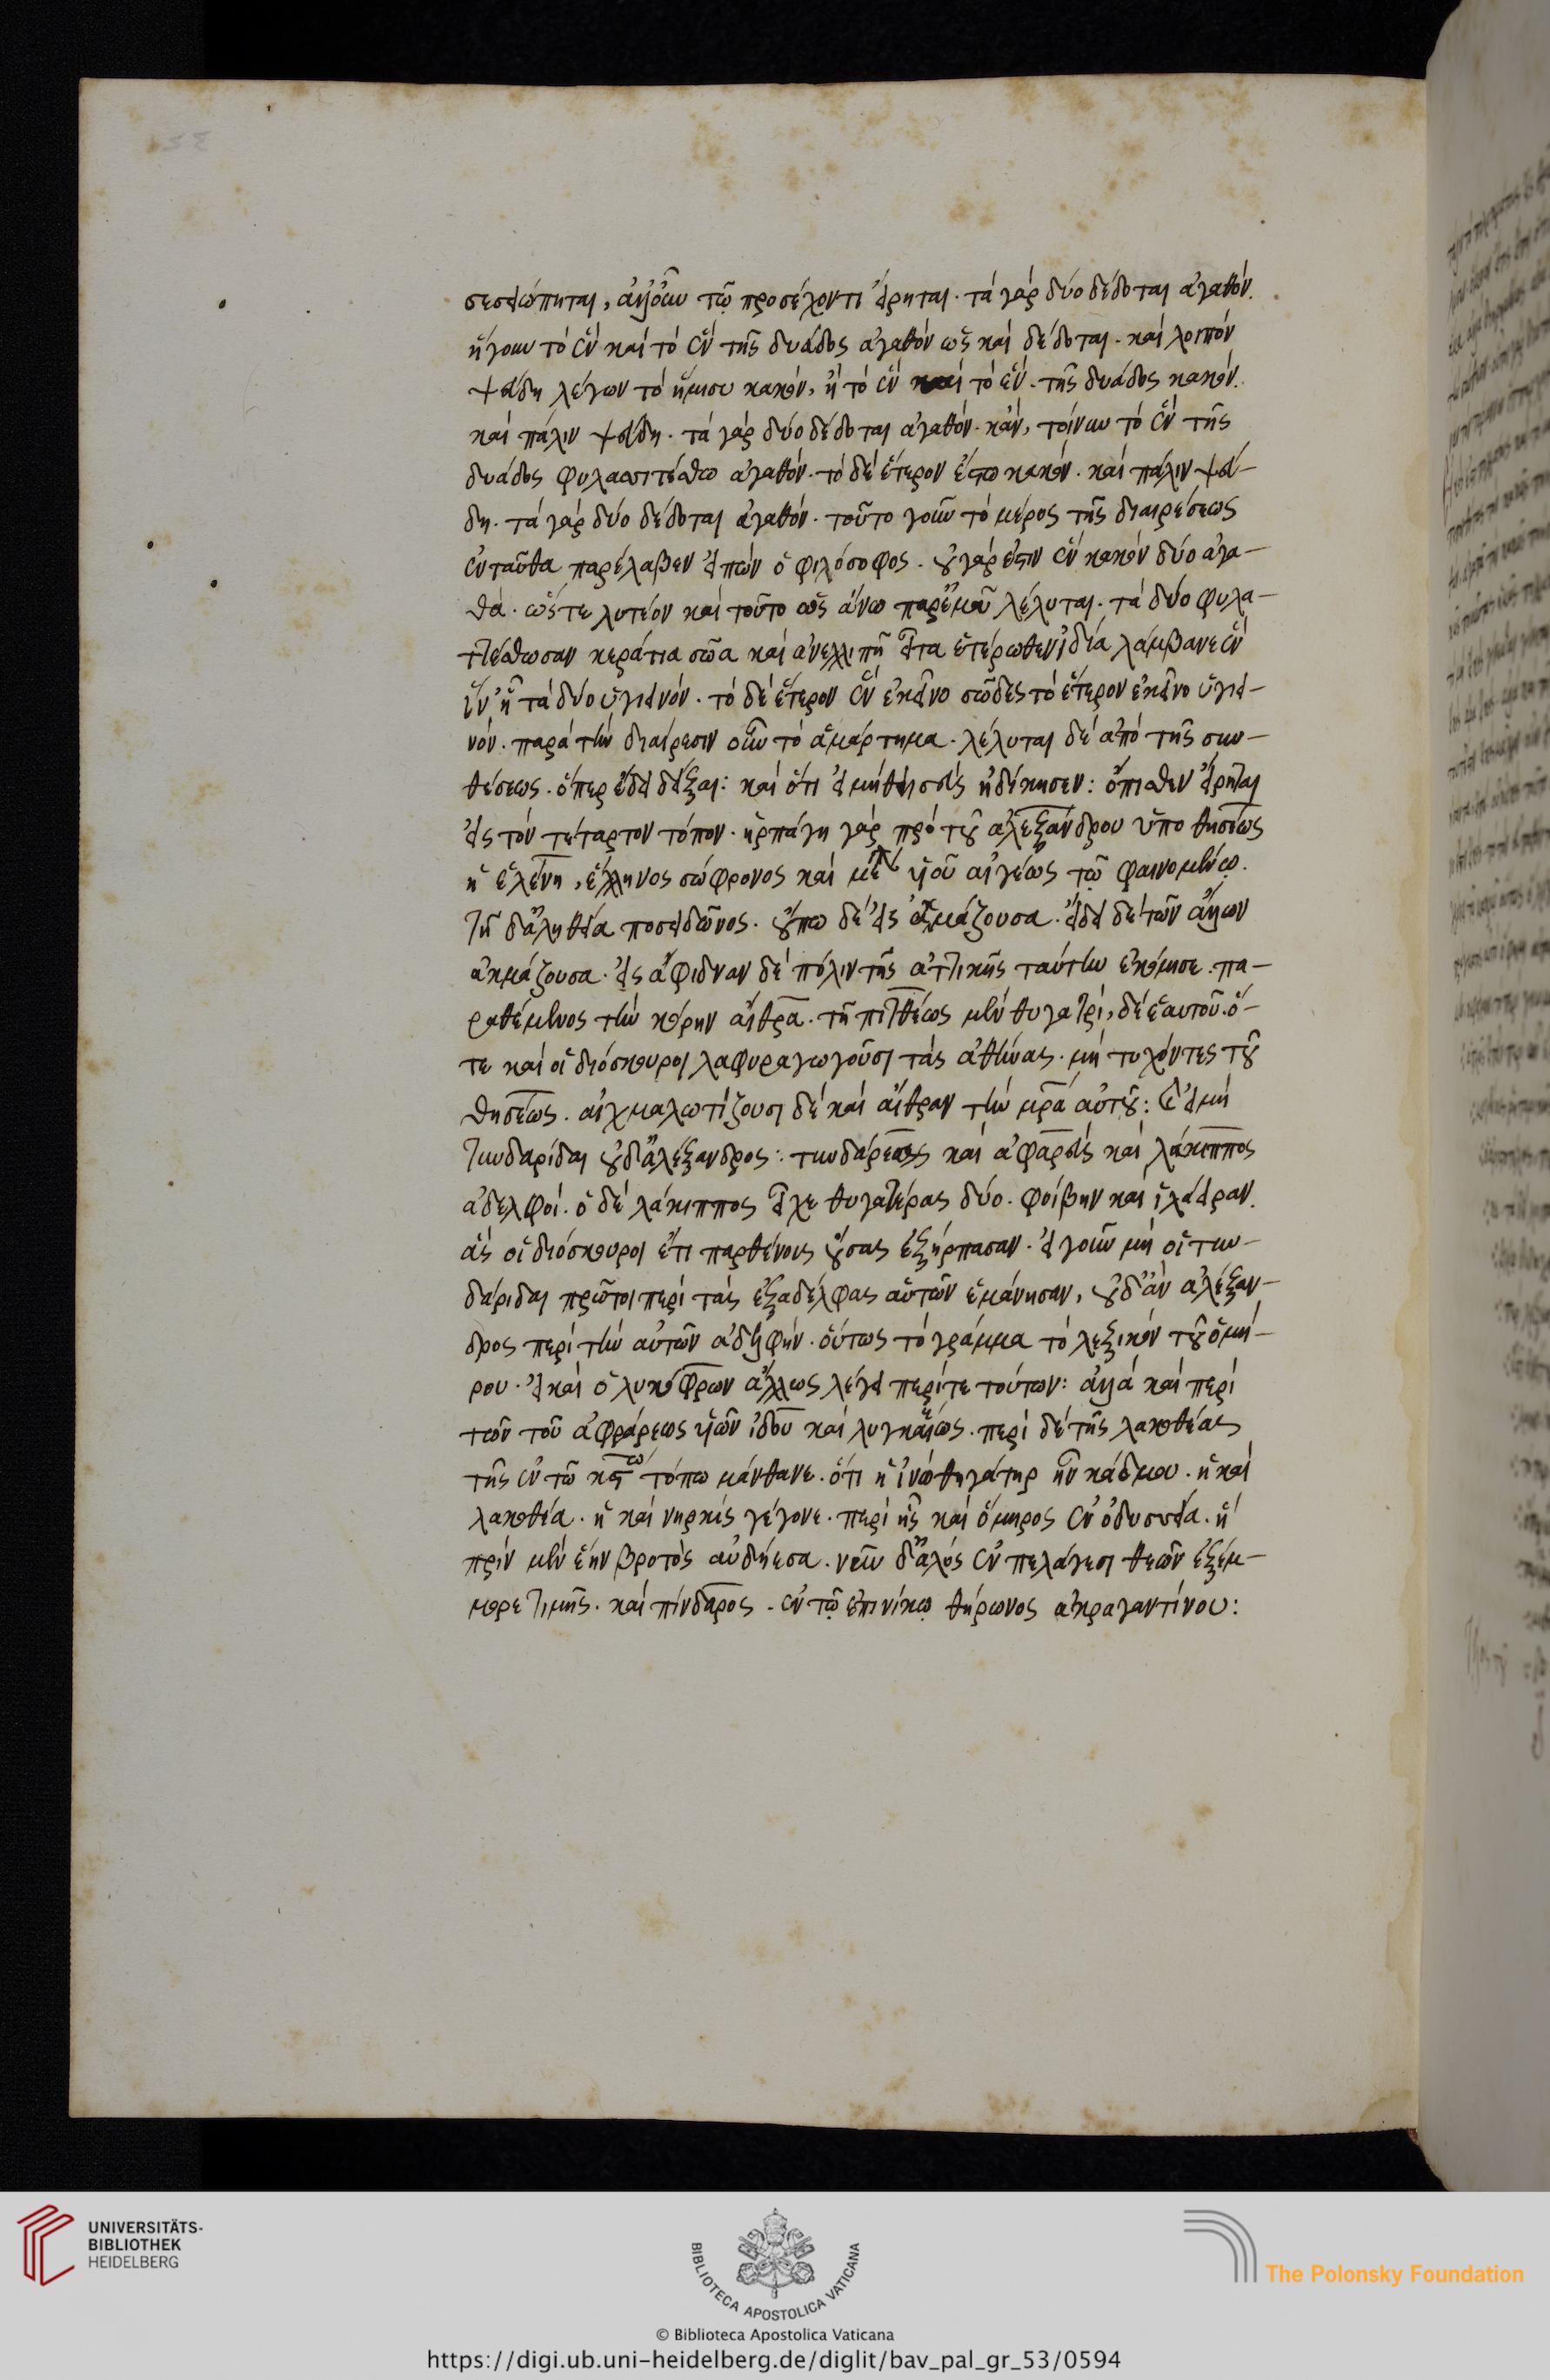 σεσιώπηται, ἀλλ' οὖν τῷ προσέχοντι εἴρηται. τὰ γὰρ δύο δέδοται ἀγαθόν.
ἤγουν τὸ ἓν καὶ τὸ ἓν τῆς δυάδος ἀγαθὸν ὡς καὶ δέδοται. καὶ λοιπὸν
ψεύδη λέγων τὸ ἥμισυ κακόν, ἢ τὸ ἓν καὶ τὸ ἕν. τῆς δυάδος κακόν.
καὶ πάλιν ψεύδη. τὰ γὰρ δύο δέδοται ἀγαθόν. κἄν, τοίνυν τὸ ἓν τῆς
δυάδος φυλαττέσθω ἀγαθόν. τὸ δὲ ἕτερον ἔστω κακόν. καὶ πάλιν ψεύ-
δη. τὰ γὰρ δύο δέδοται ἀγαθόν. τοῦτο γοῦν τὸ μέρος τῆς διαιρέσεως
ἐνταῦθα παρέλαβεν εἰπὼν ὁ φιλόσοφος. οὐ γάρ ἐστιν ἓν κακὸν δύο ἀγα-
θά. ὥστε λυτέον καὶ τοῦτο ὡς ἄνω παρ' ἐμοῦ λέλυται. τὰ δύο φυλα-
ττέσθωσαν κεράτια σῶα καὶ ἀνελλιπῆ εἶτα ἑτέρωθεν ἰδία λάμβανε ἓν
ἵν' ᾖ τὰ δύο ὑγιεινόν. τὸ δὲ ἕτερον ἓν ἐκεῖνο σῶδες τὸ ἕτερον ἐκεῖνο ὑγιει-
νόν. παρὰ τὴν διαίρεσιν οὖν τὸ ἁμάρτημα. λέλυται δὲ ἀπὸ τῆς συν-
θέσεως. ὅπερ ἔδει δεῖξαι: καὶ ὅτι εἰ μὴ θησεὺς ἠδίκησεν: ὄπισθεν εἴρηται
εἰς τὸν τέταρτον τόπον. ἡρπάγη γὰρ πρὸ τοῦ ἀλεξάνδρου ὑπὸ θησέως
ἡ ἑλένη, ἕλληνος σώφρονος καὶ υἱοῦ αἰγέως τῷ φαινομένῳ.
τῇ δ' ἀληθεία ποσειδῶνος. οὔπω δὲ εἰς ἀκμάζουσα. εἴδει δὲ τῶν ἄλλων
ἀκμάζουσα. εἰς ἄφιδναν δὲ πόλιν τῆς ἀττικῆς ταύτην ἐκόμισε. πα-
ραθέμενος τὴν κόρην αἴθρα. τῇ πιτθέως μὲν θυγατρί, δὲ ἑαυτοῦ. ὅ-
τε καὶ οἱ διόσκουροι λαφυραγωγοῦσι τὰς ἀθήνας. μὴ τυχόντες τοῦ
θησέως. αἰχμαλωτίζουσι δὲ καὶ αἴθραν τὴν μρα αὐτοῦ: καὶ εἰ μὴ
τυνδαρίδαι οὐδ' ἀλέξανδρος: τυνδάρεως καὶ ἀφαρεὺς καὶ λάκιππος
ἀδελφοί. ὁ δὲ λάκιππος εἶχε θυγατέρας δύο. φοίβην καὶ ἱλάειραν.
ἃς οἱ διόσκουροι ἔτι παρθένους οὔσας ἐξήρπασαν. εἰ γοῦν μὴ οἱ τυν-
δάριδαι πρῶτοι περὶ τὰς ἐξαδέλφας αὑτῶν ἐμάνησαν, οὐδ' ἂν ἀλέξαν-
δρος περὶ τὴν αὐτῶν ἀδελφήν. οὕτως τὸ γράμμα τὸ λεξικὸν τοῦ ὁμή-
ρου. εἰ καὶ ὁ λυκόφρων ἄλλως λέγει περί τε τούτων: ἀλλὰ καὶ περὶ
τῶν τοῦ ἀφράρεως υἱῶν ἴδου καὶ λυγκέως. περὶ δὲ τῆς λακοθέας
τῆς ἐν τῶ τόπω μάνθανε. ὅτι ἡ ἰνὼ θηγάτηρ ἦν κάδμου. ἡ καὶ
λακοθέα. ἡ καὶ νηρηὶς γέγονε. περὶ ἧς καὶ ὅμηρος ἐν ὀδυσσεία. ἡ
πρὶν μὲν ἔην βροτὸς αὐδήεσα. νῦν δ' ἁλὸς ἐν πελάγεσι θεῶν ἐξέμ-
μορε τιμῆς. καὶ πίνδαρος. ἐν τῷ ἐπινίκῳ θήρωνος ἀκραγαντίνου:
UNIVERSITÄTS-
BIBLIOTHEK
HEIDELBERG
BIBLIOTECA APOSTOLICA VATICANA
The Polonsky Foundation
© Biblioteca Apostolica Vaticana
https://digi.ub.uni-heidelberg.de/diglit/bav_pal_gr_53/0594